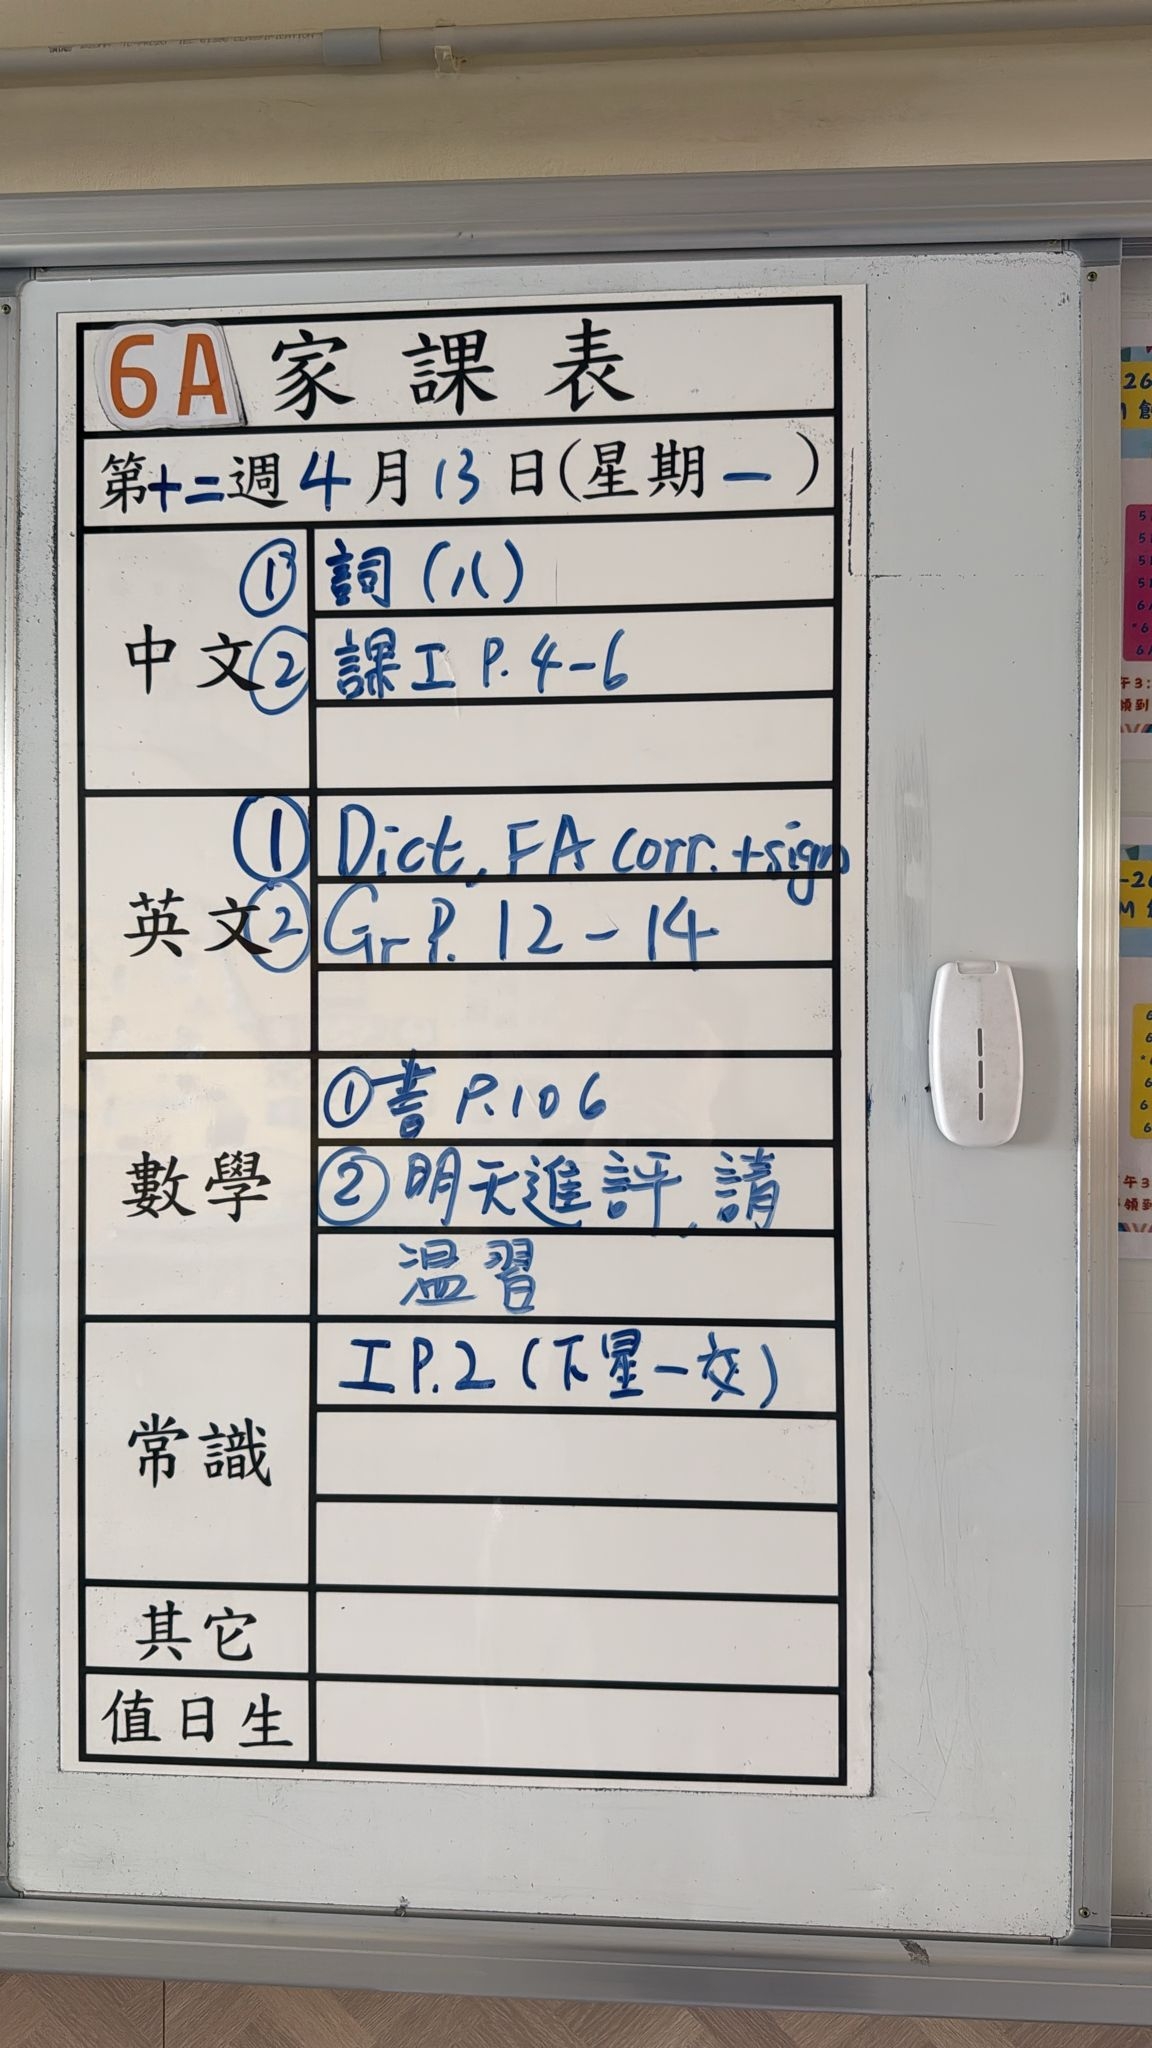 6A 家課表
第十二週4月13日(星期一)
中文
① 詞(八)
② 課工 P.4-6
英文
① Dict, FA corr. + sign
② Gr P. 12-14
數學
① 書 P.106
② 明天進評,請
温習
常識
工 P.2 (下星一交)
其它
值日生